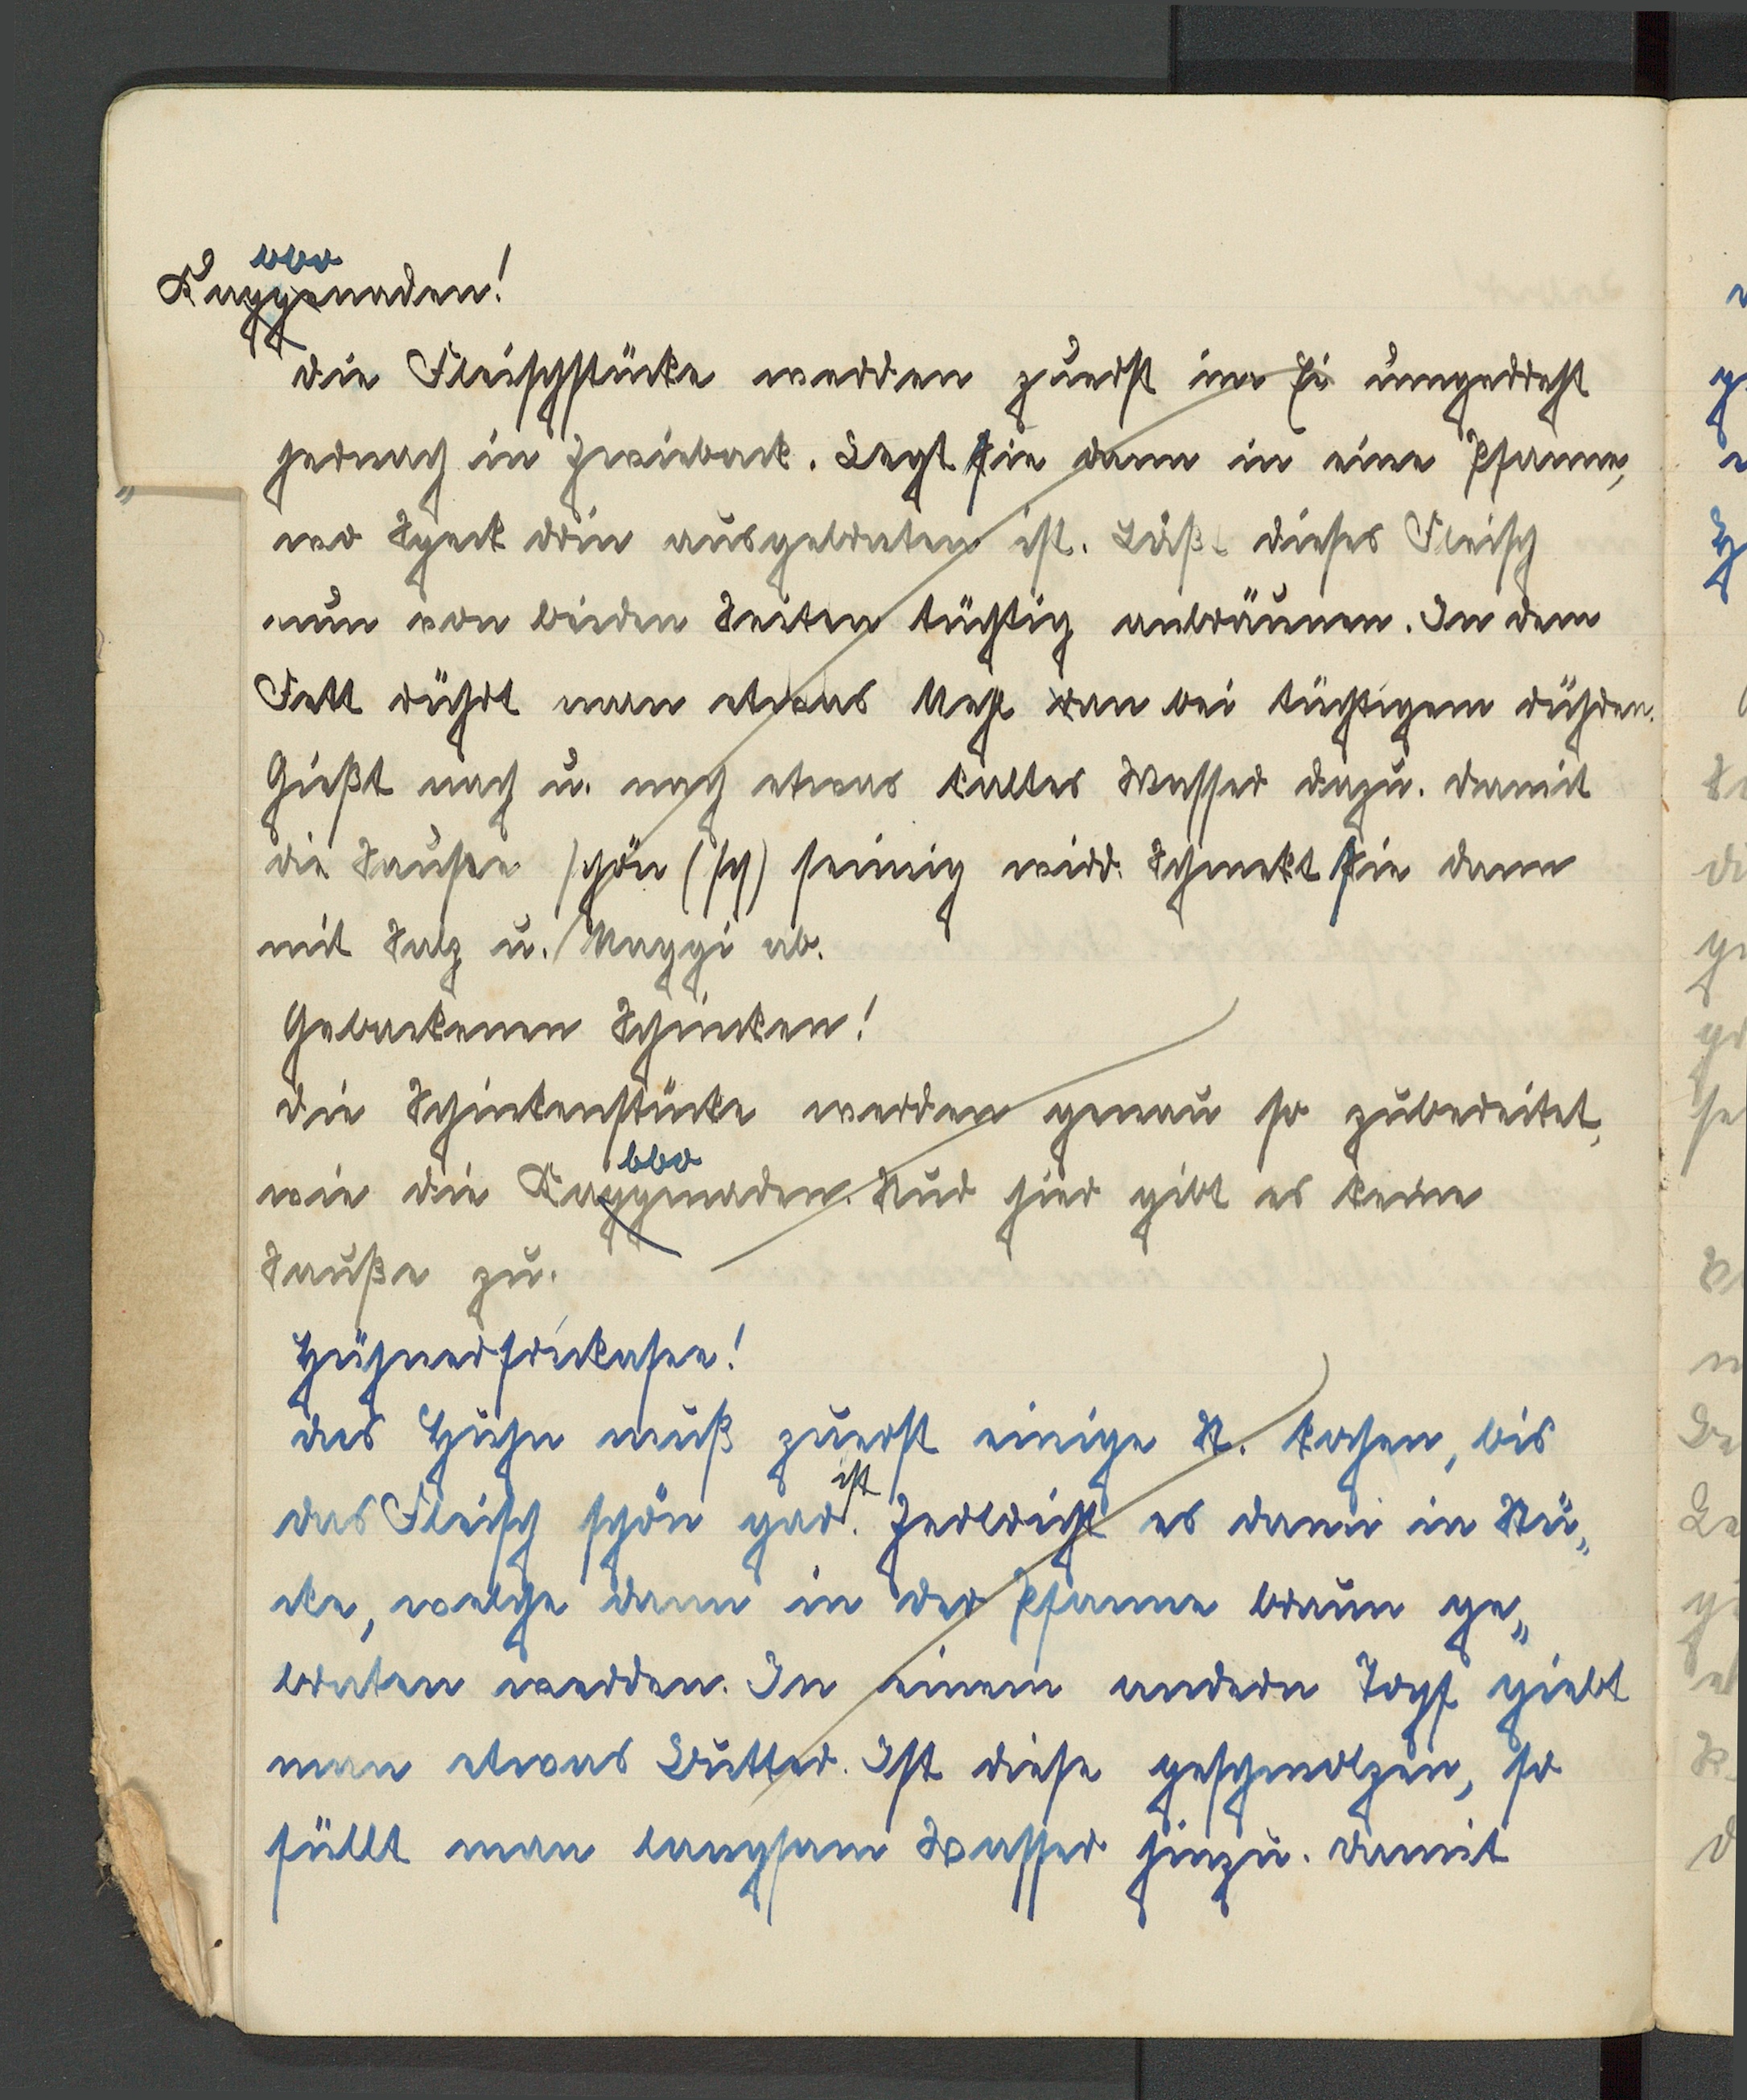 bbo
Kaggenaden!
die Fleischstücke werden zuerst im Ei umgedreht
hernach in Zwieback. Legt sie dann in eine Pfanne,
wo Speck drin ausgebraten ist. Läßt dieses Fleisch
nun von beiden Seiten tüchtig anbräunen. In dem
Fett rührt man etwas Mehl ran bei tüchtigem rühren.
Gießt nach u. nach etwas kaltes Wasser dazu. damit
die Sauße schön (sch) seimig wird. Schmekt sie dann
mit Salz u. Maggi ab.
Gebackenen Schinken!
die Schinkenstücke werden genau so zubereitet,
bbo
wie die Kaggenaden. Nur hier gibt es keine
Sauße zu.
Hühnerfrikasee!
das Huhn muß zuerst einige St. kochen, bis
ist
das Fleisch schön gar. Zerbricht es dann in Stü„
cke, welche dann in der Pfanne braun ge„
braten werden. In einem andern Topf giebt
man etwas Butter. Ist diese geschmolzen, so
füllt man langsam Wasser hinzu. damit